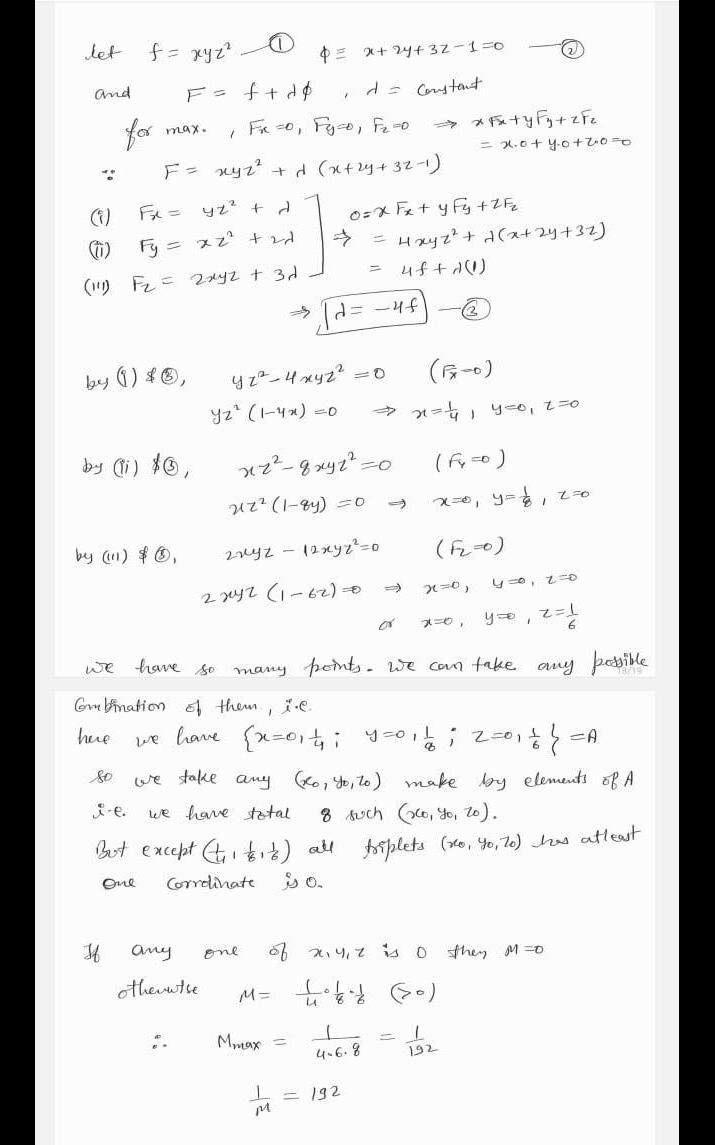 let f = xyz² — ① φ ≡ x+2y+3z-1=0 — ②
and F = f + λφ , λ = constant
for max. , Fx=0, Fy=0, Fz=0 ⇒ xFx+yFy+zFz
= x.0+y.0+z.0=0
∵ F = xyz² + λ (x+2y+3z-1)
(i) Fx = yz² + λ
(ii) Fy = xz² + 2λ
(iii) Fz = 2xyz + 3λ
⇒ 0 = xFx + yFy + zFz
= 4xyz² + λ(x+2y+3z)
= 4f + λ(1)
⇒ λ = -4f — ③
by (i) & ③, yz²-4xyz² = 0 (Fx=0)
yz² (1-4x) = 0 ⇒ x=1/4, y=0, z=0
by (ii) & ③, xz²-8xyz²=0 (Fy=0)
xz² (1-8y) = 0 ⇒ x=0, y=1/8, z=0
by (iii) & ③, 2xyz - 12xyz²=0 (Fz=0)
2xyz (1-6z)=0 ⇒ x=0, y=0, z=0
or x=0, y=0, z=1/6
we have so many points. we can take any possible
18/19
Combination of them, i.e.
here we have {x=0,1/4; y=0,1/8; z=0,1/6} = A
so we take any (x0, y0, z0) make by elements of A
i.e. we have total 8 such (x0, y0, z0).
But except (1/4, 1/8, 1/6) all triplets (x0, y0, z0) has atleast
one corrdinate is 0.
If any one of x,y,z is 0 then M=0
otherwise M = 1/4 · 1/8 · 1/6 (>0)
∴ Mmax = 1/4.6.8 = 1/192
1/M = 192